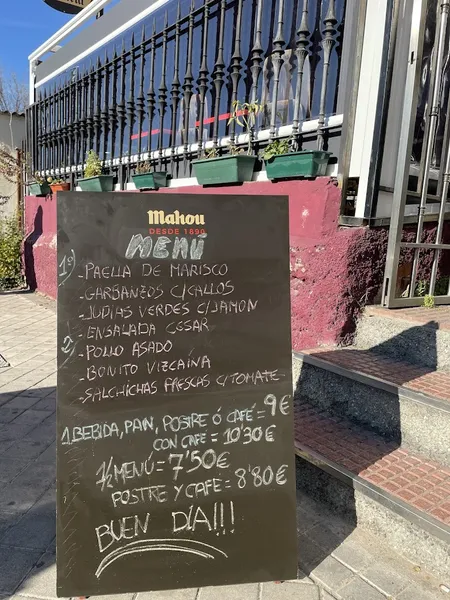 Mahou
DESDE 1890
MENÚ
1º
-PAELLA DE MARISCO
-GARBANZOS C/CALLOS
-JUDIAS VERDES C/JAMON
-ENSALADA CESAR
2º
-POLLO ASADO
-BONITO VIZCAINA
-SALCHICHAS FRESCAS C/TOMATE
1 BEBIDA, PAN, POSTRE Ó CAFÉ = 9€
CON CAFE = 10'30€
1/2 MENÚ = 7'50€
POSTRE Y CAFE = 8'80€
BUEN DÍA!!!